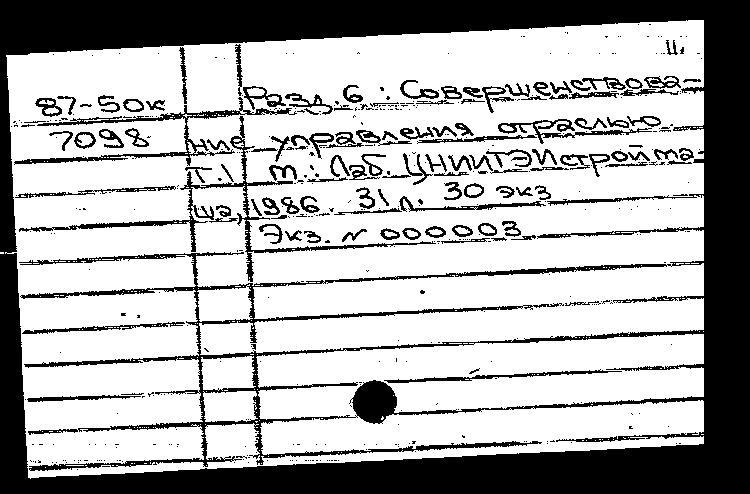 11.
87-50к Разд. 6 : Совершенствова-
7098 ние управления отраслью.
Т.1 м.: Лаб. ЦНИИТЭИстройма-
ша, 1986. 31 л. 30 экз
Экз. N 000003